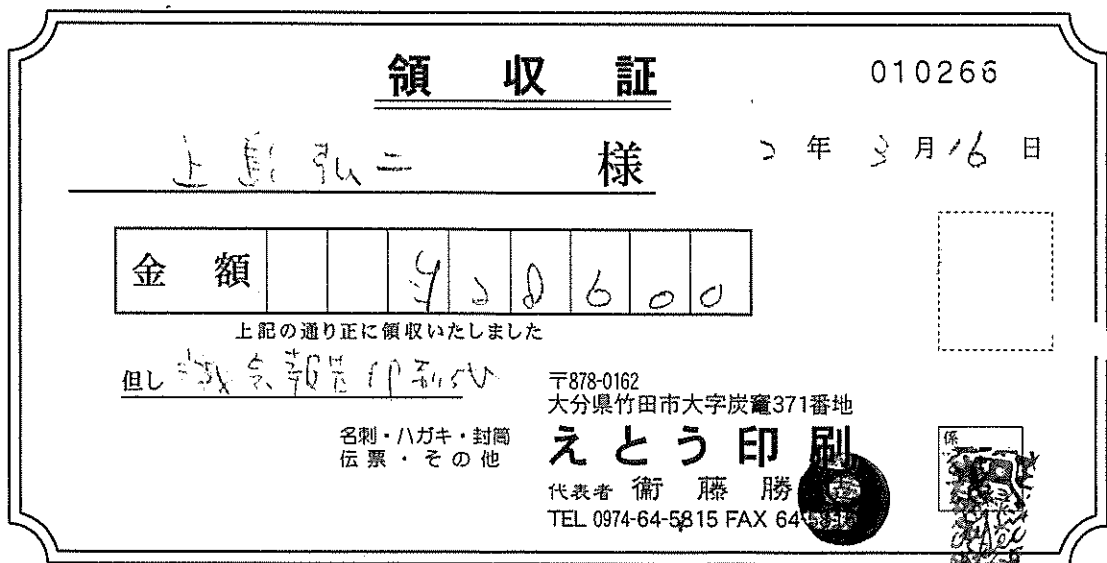 領収証
010266
上島弘二 様
2年 3月16日
金額 ¥28600
上記の通り正に領収いたしました
但し 議会報告印刷代
〒878-0162
大分県竹田市大字炭竈371番地
名刺・ハガキ・封筒
伝票・その他
えとう印刷
代表者 衞藤勝
TEL 0974-64-5815 FAX 64-
係